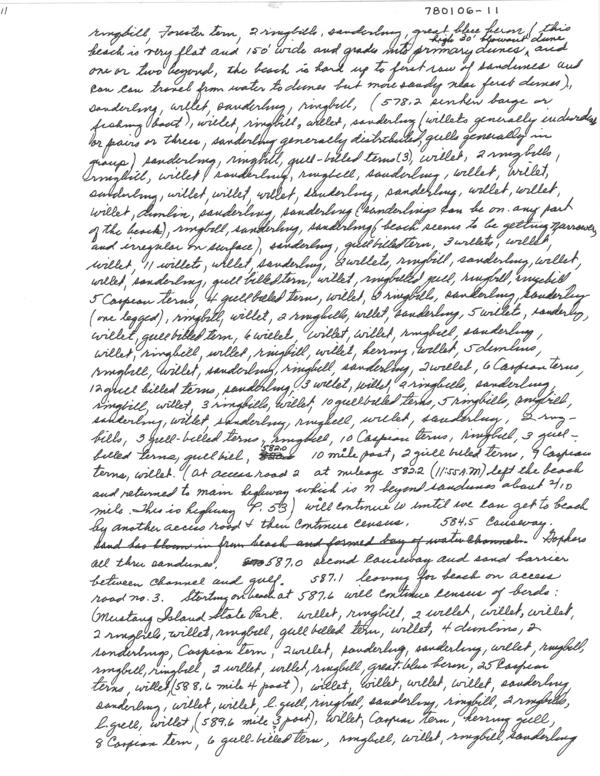 11
780106-11
ringbill, Forester tern, 2 ringbills, sanderling, great blue heron, (this
high 20' blowout dune
beach is very flat and 150' wide and grades into primary dunes, and
one or two beyond, the beach is hard up to first row of sandunes and
can travel from water to dunes but more sandy near first dunes),
sanderling, willet, sanderling, ringbill, (578.2 sunken barge or
fishing boat), willet, ringbill, willet, sanderling (willets generally individuals
or pairs or threes, sanderling generally distributed, gulls generally in
group) sanderling, ringbill, gull-billed terns (3), willet, 2 ringbills,
ringbill, willet, sanderling, ringbill, sanderling, willet, willet,
sanderling, willet, willet, willet, sanderling, sanderling, willet, willet,
willet, dunlin, sanderling, sanderling (sanderlings can be on any part
of the beach), ringbill, sanderling, sanderling (beach seems to be getting narrower
and irregular on surface), sanderling, gull billed tern, 3 willets, willet,
willet, 11 willets, willet, sanderling, 2 willets, ringbill, sanderling, willet,
willet, sanderling, gull billed tern, willet, ringbilled gull, ringbill, ringbill
5 Caspian terns, 4 gull billed tern, willet, ringbills, sanderling, sanderling
(one legged), ringbill, willet, 2 ringbills, willet, sanderling, 5 willets, sanderling,
willet, gull billed tern, 6 willet, willet, willet, ringbill, sanderling
willet, ringbill, willet, ringbill, willet, herring, willet, 5 dunlins,
ringbill, willet, sanderling, ringbill, sanderling, 2 willet, 6 Caspian terns,
12 gull billed terns, sanderling, 3 willet, willet, 2 ringbills, sanderling,
ringbill, willet, 3 ringbills, willet, 10 gull billed terns, 5 ringbills, ringbill,
sanderling, willet, sanderling, ringbill, willet, sanderling, 2 ring-
bills, 3 gull-billed terns, ringbill, 10 Caspian terns, ringbill, 3 gull-
billed terns, gull bill, 582.0 10 mile post, 2 gull billed terns, 9 Caspian
terns, willet. (at access road 2 at mileage 582.2 (11:55 A.M) left the beach
and returned to main highway which is N beyond sandunes about 2/10
mile. This is highway P. 53) will continue w until we can get to beach
by another access road & then continue census. 584.5 Causeway.
sand has blown in from beach and formed bay of water channel. Gophers
all thru sandunes. 587.0 second Causeway and sand barrier
between channel and gulf. 587.1 leaving for beach on access
road no. 3. Starting on beach at 587.6 will continue census of birds:
(Mustang Island State Park. willet, ringbill, 2 willet, willet, willet,
2 ringbills, willet, ringbill, gull billed tern, willet, 4 dunlins, 2
sanderlings, Caspian tern, 2 willet, sanderling, sanderling, willet, ringbill,
ringbill, ringbill, 2 willet, willet, ringbill, great blue heron, 25 Caspian
terns, willet, (588.6 mile 4 post), willet, willet, willet, willet, sanderling
sanderling, willet, willet, l. gull, ringbill, sanderling, ringbill, 2 ringbills,
l. gull, willet, (589.6 mile 3 post), willet, Caspian tern, herring gull,
8 Caspian tern, 6 gull-billed tern, ringbill, willet, ringbill, sanderling